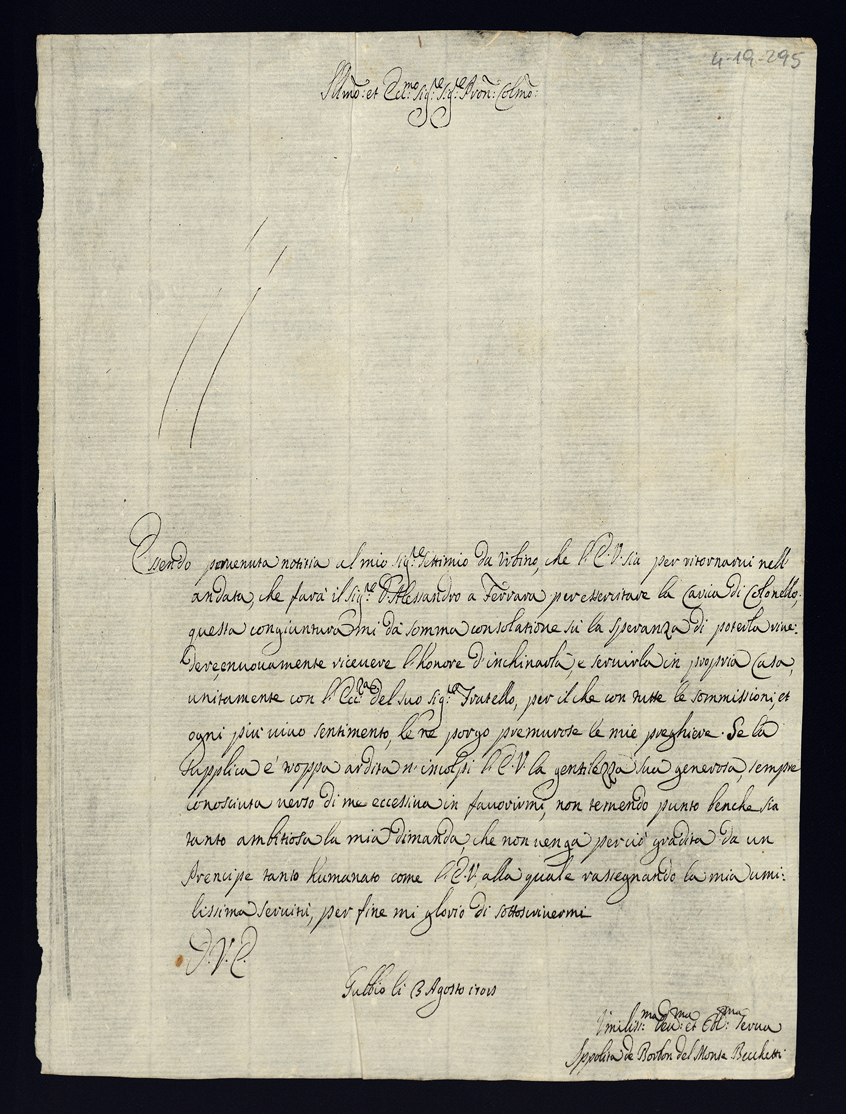 4-19-295
Ill.mo et Ecc.mo Sig.re Sig.re Pron: Colmo:
Essendo pervenuta notitia al mio Sig.re Settimio da Urbino, che l'E.V. sia per ritornarvi nell'
andata, che farà il Sig.re D. Alessandro a Ferrara per esercitare la Carica di Colonello,
questa congiuntura mi dà somma consolatione su la speranza di poterla rive:
dere, e nuovamente ricevere l'honore d'inchinarla, e servirla in propria Casa,
unitamente con l'Ecc.za del suo Sig.re Fratello, per il che con tutte le sommissioni, et
ogni più vivo sentimento, le ne porgo premurose le mie preghiere. Se la
supplica è troppa ardita n'incolpi l'E.V. la gentilezza sua generosa, sempre
conosciuta verso di me eccessiva in favorirmi, non temendo punto benche sia
tanto ambitiosa la mia dimanda, che non venga perciò gradita da un
Prencipe tanto humanato come l'E.V., alla quale rassegnando la mia umi:
lissima servitù, per fine mi glorio di sottoscrivermi
D.V.E.
Gubbio li 3 Agosto
Umiliss:ma Dev:ma et Obl:ma Serva
Ippolita de Borbon del Monte Becchetti